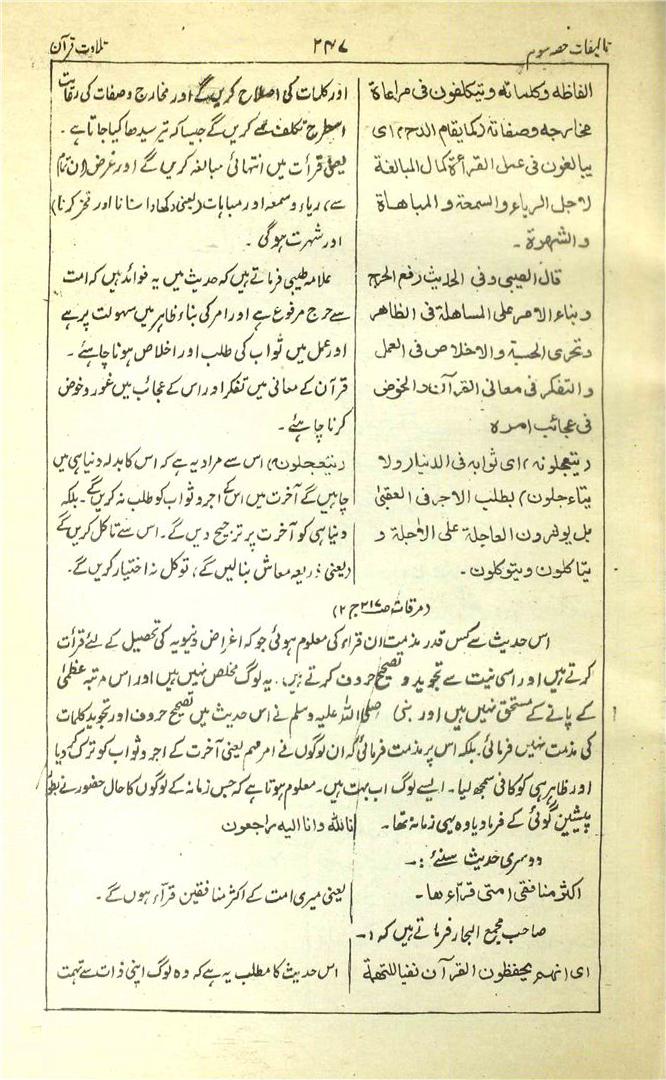 تالیفات حصہ سوم ۲۴۷ تلاوت قرآن
الفاظه وكلماته ويتكلفون فى مراعاة
مخارجه وصفاته (كما يقام القدح) اى
يبالغون فى عمل القرأة كمال المبالغة
لاجل الرياء والسمعة والمباهاة
والشهرة ۔
قال الطيبى وفى الحديث رفع الحرج
وبناء الامر على المساهلة فى الظاهر
وتحرى الحسبة والاخلاص فى العمل
والتفكر فى معانى القرآن والخوض
فى عجائب امره
(يتعجلونه) اى ثوابه فى الدنيا ولا
يتاءجلون) بطلب الاجر فى العقبىٰ
بل يوثرون العاجلة على الآجلة و
يتاكلون ويتوكلون ۔
اور کلمات کی اصلاح کریں گے اور مخارج وصفات کی رعایت
اسطرح تکلف سے کریں گے جیسا کہ تیر سیدھا کیا جاتا ہے ۔
یعنی قرأت میں انتہائی مبالغہ کریں گے اور غرض (ان تمام
سے) ریاء وسمعہ اور مباہات (یعنی دکھاوا سنانا اور فخر کرنا)
اور شہرت ہوگی ۔
علامہ طیبی فرماتے ہیں کہ حدیث میں یہ فوائد ہیں کہ امت
سے حرج مرفوع ہے اور امر کی بناء ظاہر میں سہولت پر ہے
اور عمل میں ثواب کی طلب اور اخلاص ہونا چاہئے ۔
قرآن کے معانی میں تفکر اور اس کے عجائب میں غور وخوض
کرنا چاہئے ۔
(يتعجلونه) اس سے مراد یہ ہے کہ اس کا بدلہ دنیا ہی میں
چاہیں گے آخرت میں اس کے اجر وثواب کو طلب نہ کریں گے ۔ بلکہ
دنیا ہی کو آخرت پر ترجیح دیں گے ۔ اس سے تاکل کریں گے
(یعنی ذریعہ معاش بنالیں گے، توکل نہ اختیار کریں گے ۔
(مرقات ص۲۱۷ ج ۲)
اس حدیث سے کس قدر مذمت ان قراء کی معلوم ہوئی جو کہ اغراض دنیویہ کی تحصیل کے لئے قرأت
کرتے ہیں اور اسی نیت سے تجوید و تصحیح حروف کرتے ہیں ۔ یہ لوگ مخلص نہیں ہیں اور اس مرتبہ عظمیٰ
کے پانے کے مستحق نہیں ہیں اور نبی صلی اللہ علیہ وسلم نے اس حدیث میں تصحیح حروف اور تجوید کلمات
کی مذمت نہیں فرمائی ۔ بلکہ اس پر مذمت فرمائی کہ ان لوگوں نے امر مہم یعنی آخرت کے اجر وثواب کو ترک کر دیا
اور ظاہر ہی کو کافی سمجھ لیا ۔ ایسے لوگ اب بہت ہیں ۔ معلوم ہوتا ہے کہ جس زمانہ کے لوگوں کا حال حضور نے بطور
پیشین گوئی کے فرما دیا وہ یہی زمانہ تھا ۔ انا لله وانا اليه راجعون
دوسری حدیث سنئے :۔
اكثر منافقى امتى قرّاء ها ۔
یعنی میری امت کے اکثر منافقین قرّاء ہوں گے ۔
صاحب مجمع البحار فرماتے ہیں کہ :۔
اى انهم يحفظون القرآن نفيا للتهمة
اس حدیث کا مطلب یہ ہے کہ وہ لوگ اپنی ذات سے تہمت